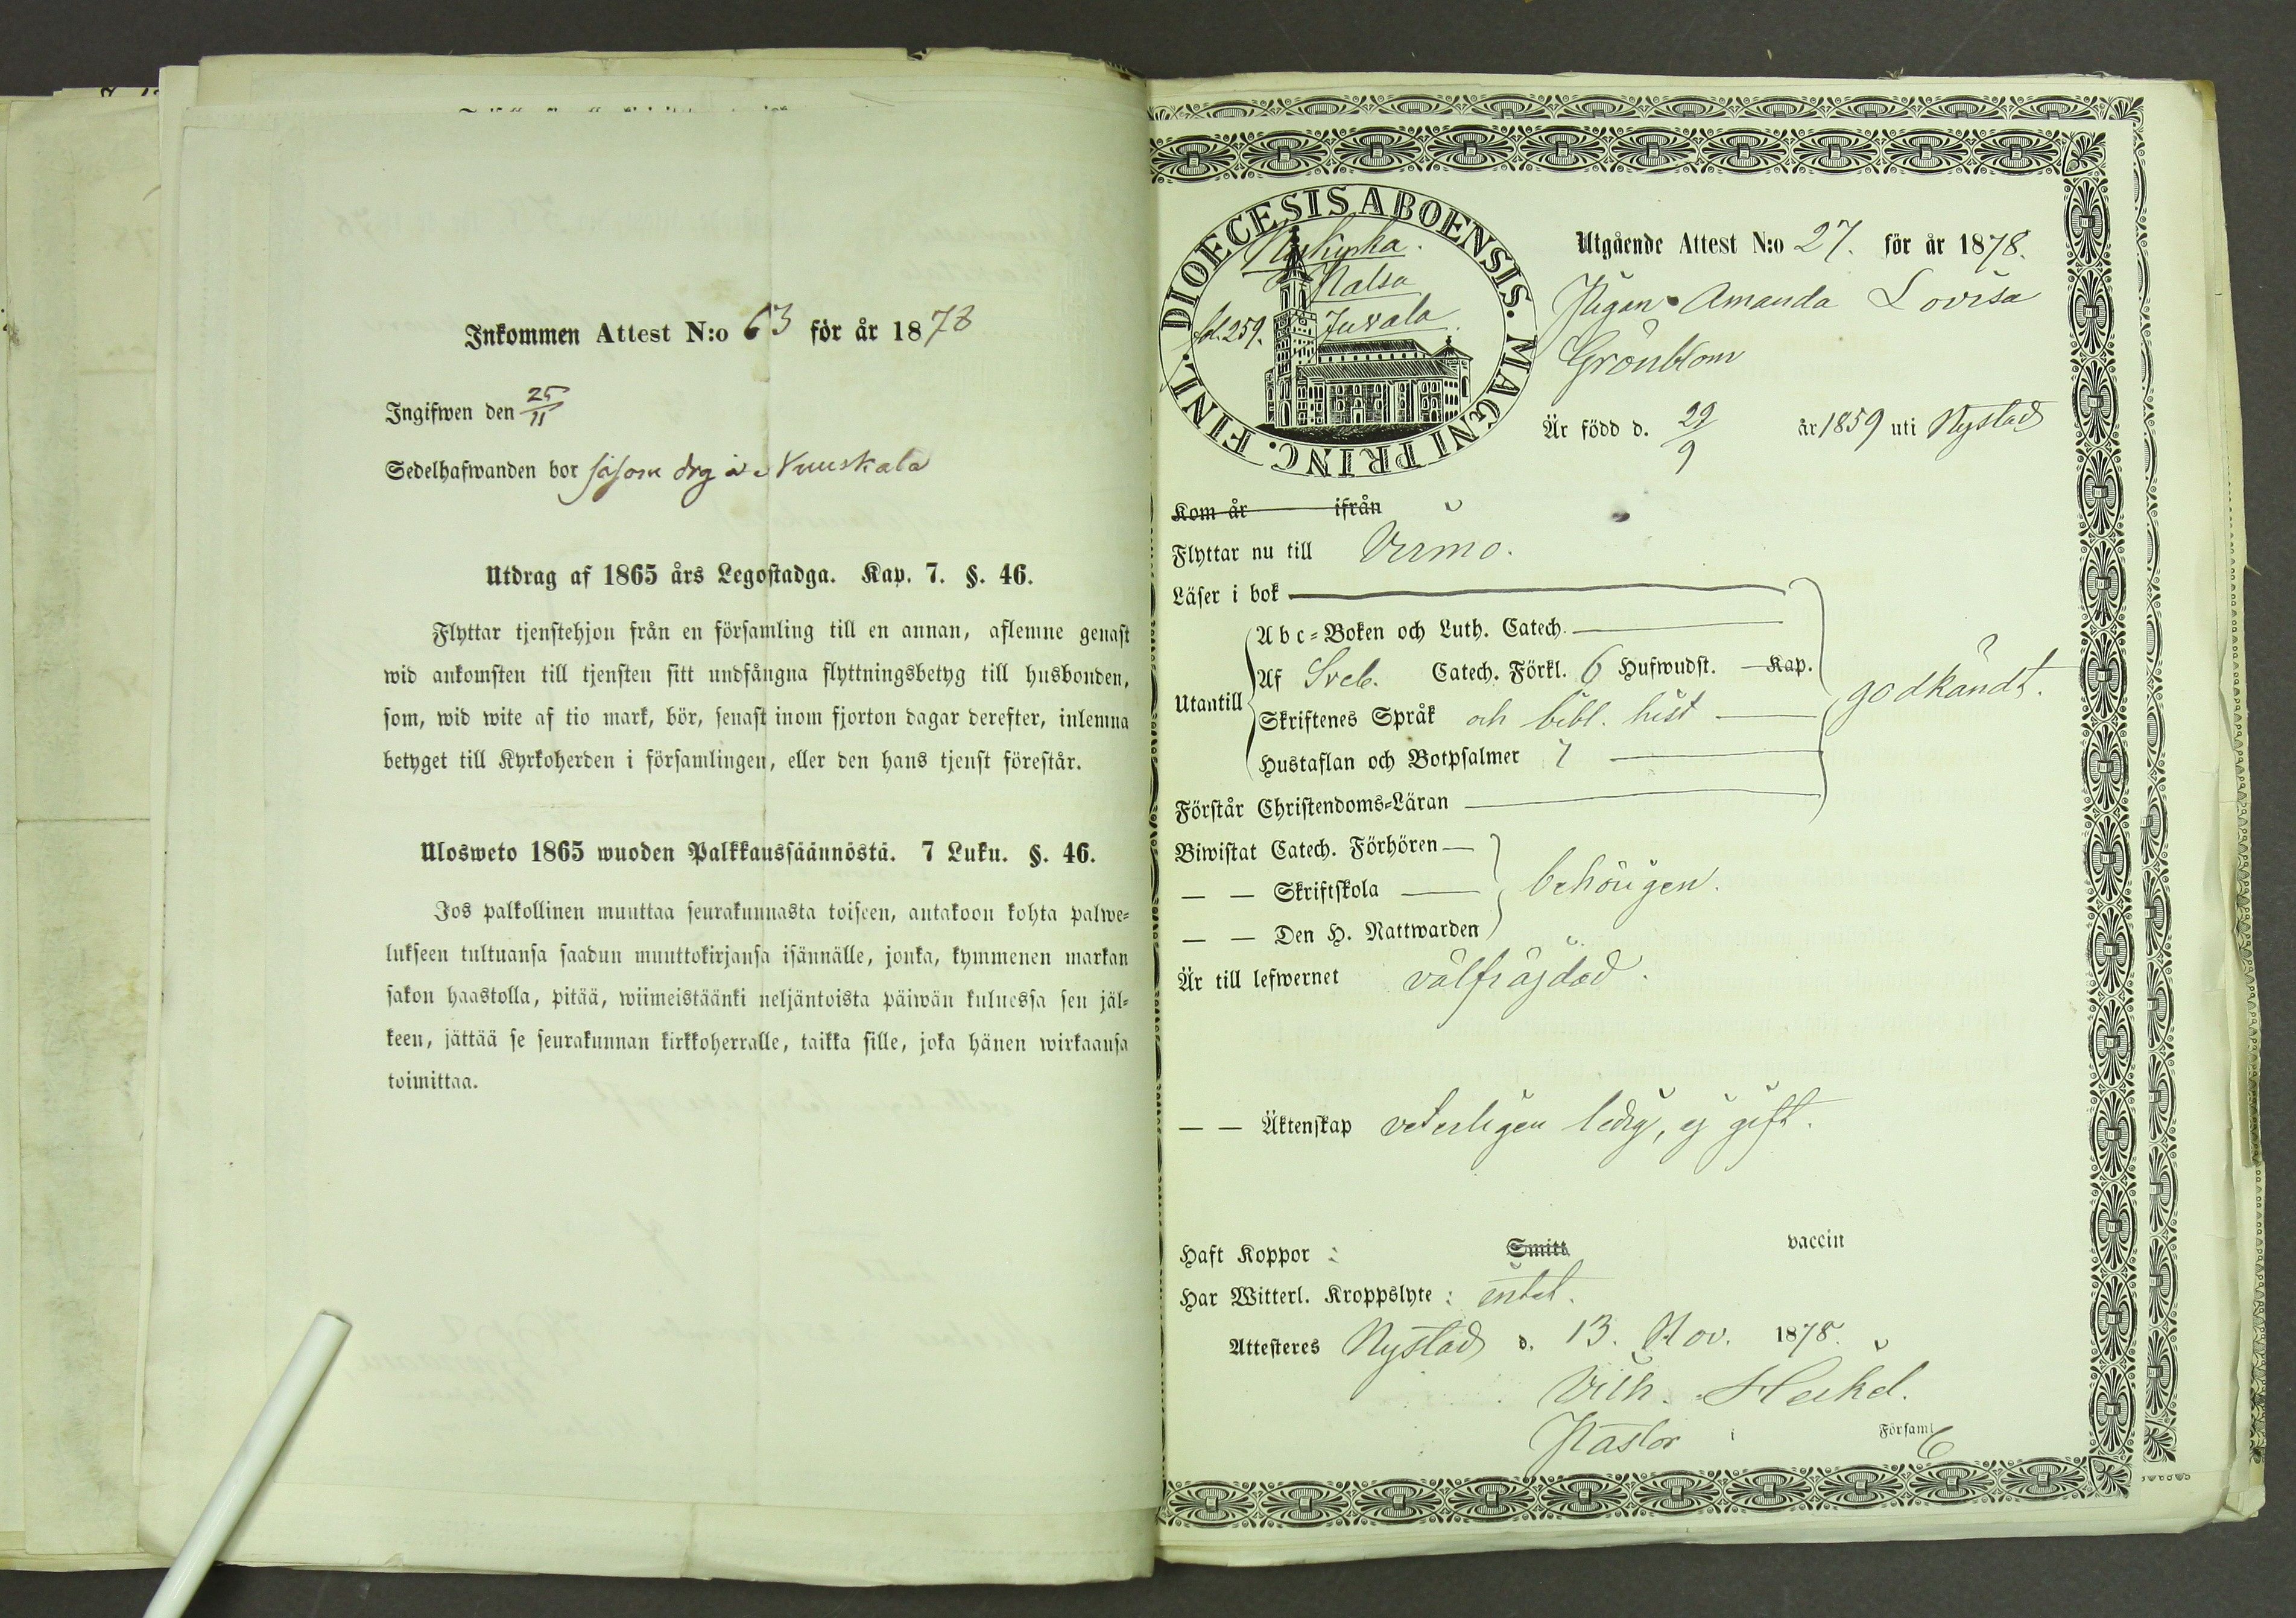 Inkommen Attest N:o 63 för år 1878
Ingifwen den 25/11
Sedelhafwanden bor såsom drg å Nuuskala
Utdrag af 1865 års Legostadga. Kap. 7. §. 46.
Flyttar tjenstehjon från en församling till en annan, aflemne genast
wid ankomsten till tjensten sitt undfångna flyttningsbetyg till husbonden,
som, wid wite af tio mark, bör, senast inom fjorton dagar derefter, inlemna
betyget till Kyrkoherden i församlingen, eller den hans tjenst förestår.
Ulosweto 1865 wuoden Palkkaussäännöstä. 7 Luku. §. 46.
Jos palkollinen muuttaa seurakunnasta toiseen, antakoon kohta palwe-
lukseen tultuansa saadun muuttokirjansa isännälle, jonka, kymmenen markan
sakon haastolla, pitää, wiimeistäänki neljäntoista päiwän kuluessa sen jäl-
keen, jättää se seurakunnan kirkkoherralle, taikka sille, joka hänen wirkaansa
toimittaa.
DIOECESIS ABOENSIS. MAGNI PRINC. FINL.
Nykyrka.
Kalsa
fol. 259. Juvala
Utgående Attest N:o 27. för år 1878.
Pigan Amanda Lovisa
Grönblom
Är född d. 29/9 år 1859 uti Nystad
Kom år ifrån
Flyttar nu till Virmo.
Läser i bok
Abc-Boken och Luth. Catech.
Utantill Af Sveb. Catech. Förkl. 6 Hufwudst. Kap. godkändt.
Skriftenes Språk och bibl. hist
Hustaflan och Botpsalmer 7
Förstår Christendoms-Läran
Biwistat Catech. Förhören
— — Skriftskola behörigen.
— — Den H. Nattwarden
Är till lefwernet välfräjdad.
— — Äktenskap veterligen ledig, ej gift.
Haft Koppor : Smitt vaccin
Har Witterl. Kroppslyte : intet.
Attesteres Nystad d. 13. Nov. 1878.
Vilh. Heikel.
Pastor i Församl